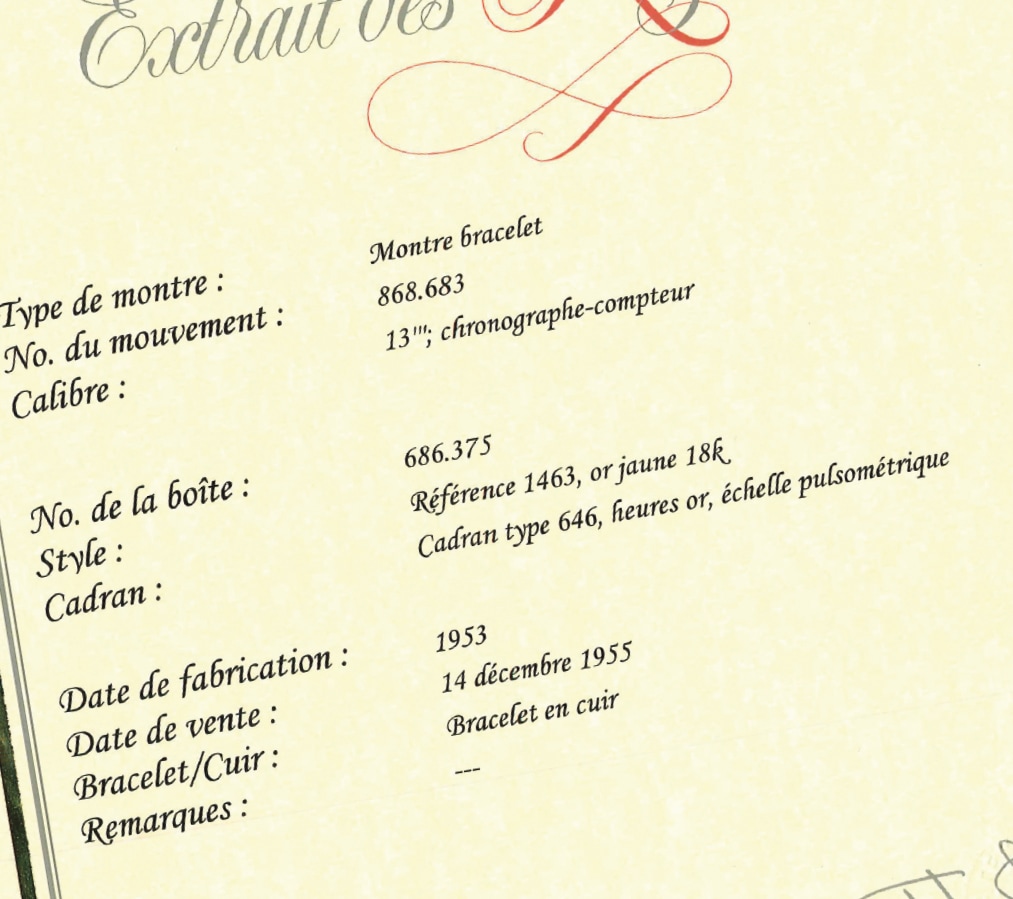 Extrait des
Type de montre : Montre bracelet
No. du mouvement : 868.683
Calibre : 13'''; chronographe-compteur
No. de la boîte : 686.375
Style : Référence 1463, or jaune 18k
Cadran : Cadran type 646, heures or, échelle pulsométrique
Date de fabrication : 1953
Date de vente : 14 décembre 1955
Bracelet/Cuir : Bracelet en cuir
Remarques : ---